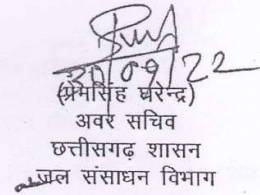 30/09/22
(प्रेमसिंह घरेन्द्र)
अवर सचिव
छत्तीसगढ़ शासन
जल संसाधन विभाग